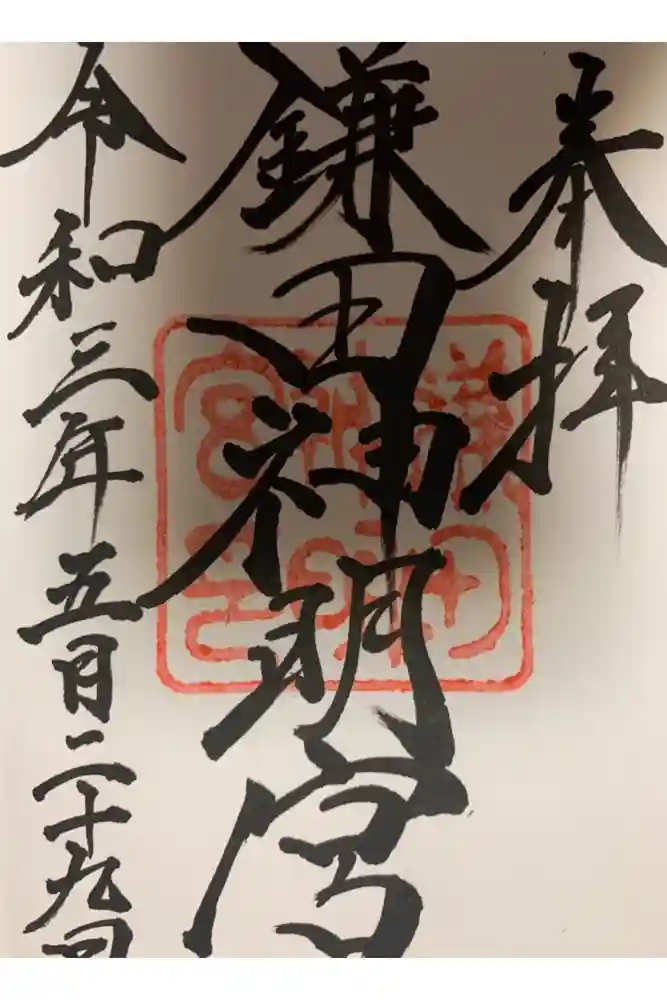 奉拝
鎌田神明宮
令和三年五月二十九日